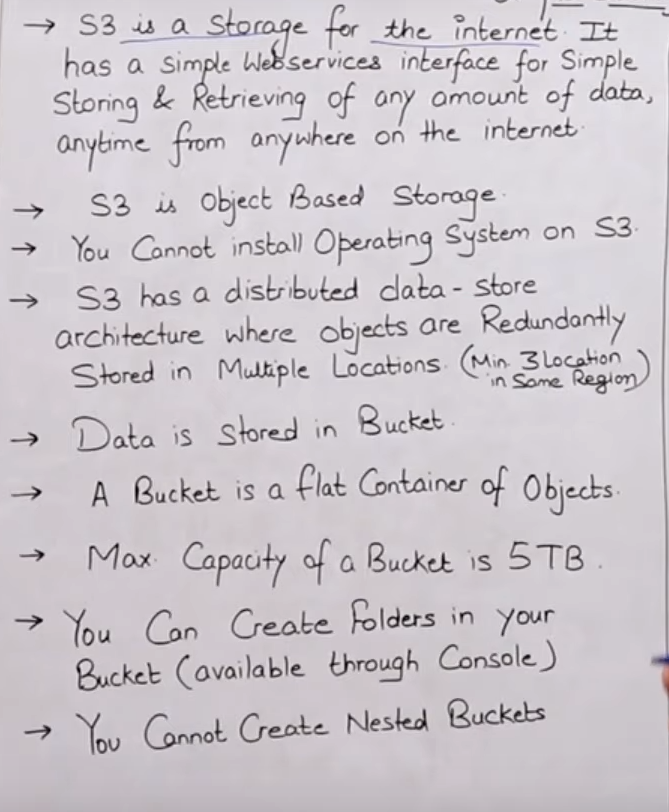 → S3 is a Storage for the internet. It
has a simple Webservices interface for Simple
Storing & Retrieving of any amount of data,
anytime from anywhere on the internet.
→ S3 is Object Based Storage.
→ You Cannot install Operating System on S3.
→ S3 has a distributed data-store
architecture where objects are Redundantly
Stored in Multiple Locations. (Min. 3 Location
in Same Region)
→ Data is stored in Bucket.
→ A Bucket is a flat Container of Objects.
→ Max. Capacity of a Bucket is 5TB.
→ You Can Create Folders in your
Bucket (available through Console)
→ You Cannot Create Nested Buckets